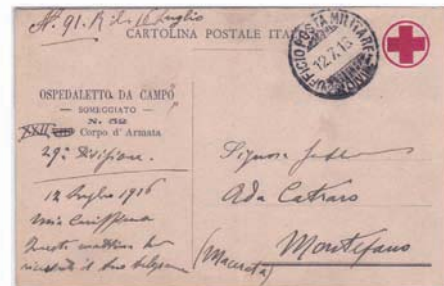 N. 91. R il 16 Luglio
CARTOLINA POSTALE ITA
UFFICIO POSTA MILITARE
12.7.16
OSPEDALETTO DA CAMPO
— SOMEGGIATO —
N. 52
XXII Corpo d'Armata
29ª Divisione.
12 Luglio 1916
mia Carissima
Questa mattina ho
ricevuto il tuo
Signora
Ada Catraro
Montefano
(Macerata)